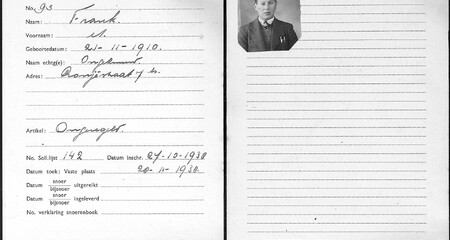 No. 93
Naam: Frank.
Voornaam:
Geboortedatum: 21-11-1910.
Naam echtg(e): Ongehuwd.
Adres:
Artikel: Ongeregeld.
No. Soll.lijst 142 Datum inschr. 27-10-1938
Datum toek: Vaste plaats 20-11-1938.
Datum snoer bijsnoer uitgereikt
Datum snoer bijsnoer ingeleverd
No. verklaring snoerenboek